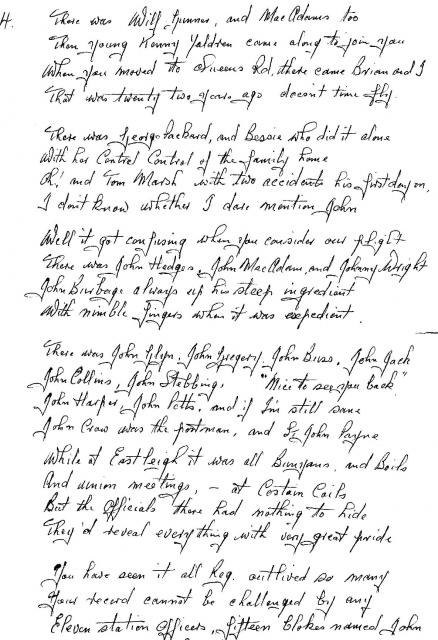 4. There was Wilf Gunner, and MacAdams too
Then young Kenny Yaldren came along to join you
When you moved to Queens Rd, there came Brian and I
That was twenty two years ago doesn't time fly.
There was George Packard, and Bessie who did it alone
With her Central Control of the family home
Oh! and Tom Marsh with two accidents his first day on,
I don't know whether I dare mention John
Well it got confusing when you consider our plight
There was John Hedges, John MacAdam, and Johnny Wright
John Burbage always up his steep ingredient
With nimble fingers when it was expedient.
There was John Glyn, John Gregory, John Buss, John Jack
John Collins, John Stebbing, "Nice to see you back"
John Harper, John Petts, and if I'm still sane
John Craw was the postman, and St John Payne
While at Eastleigh it was all Bunyans, and Boils
And union meetings, - at Costain Coils
But the Officials there had nothing to hide
They'd reveal everything with very great pride
You have seen it all Reg. outlived so many
Your record cannot be challenged by any
Eleven station officers, fifteen blokes named John